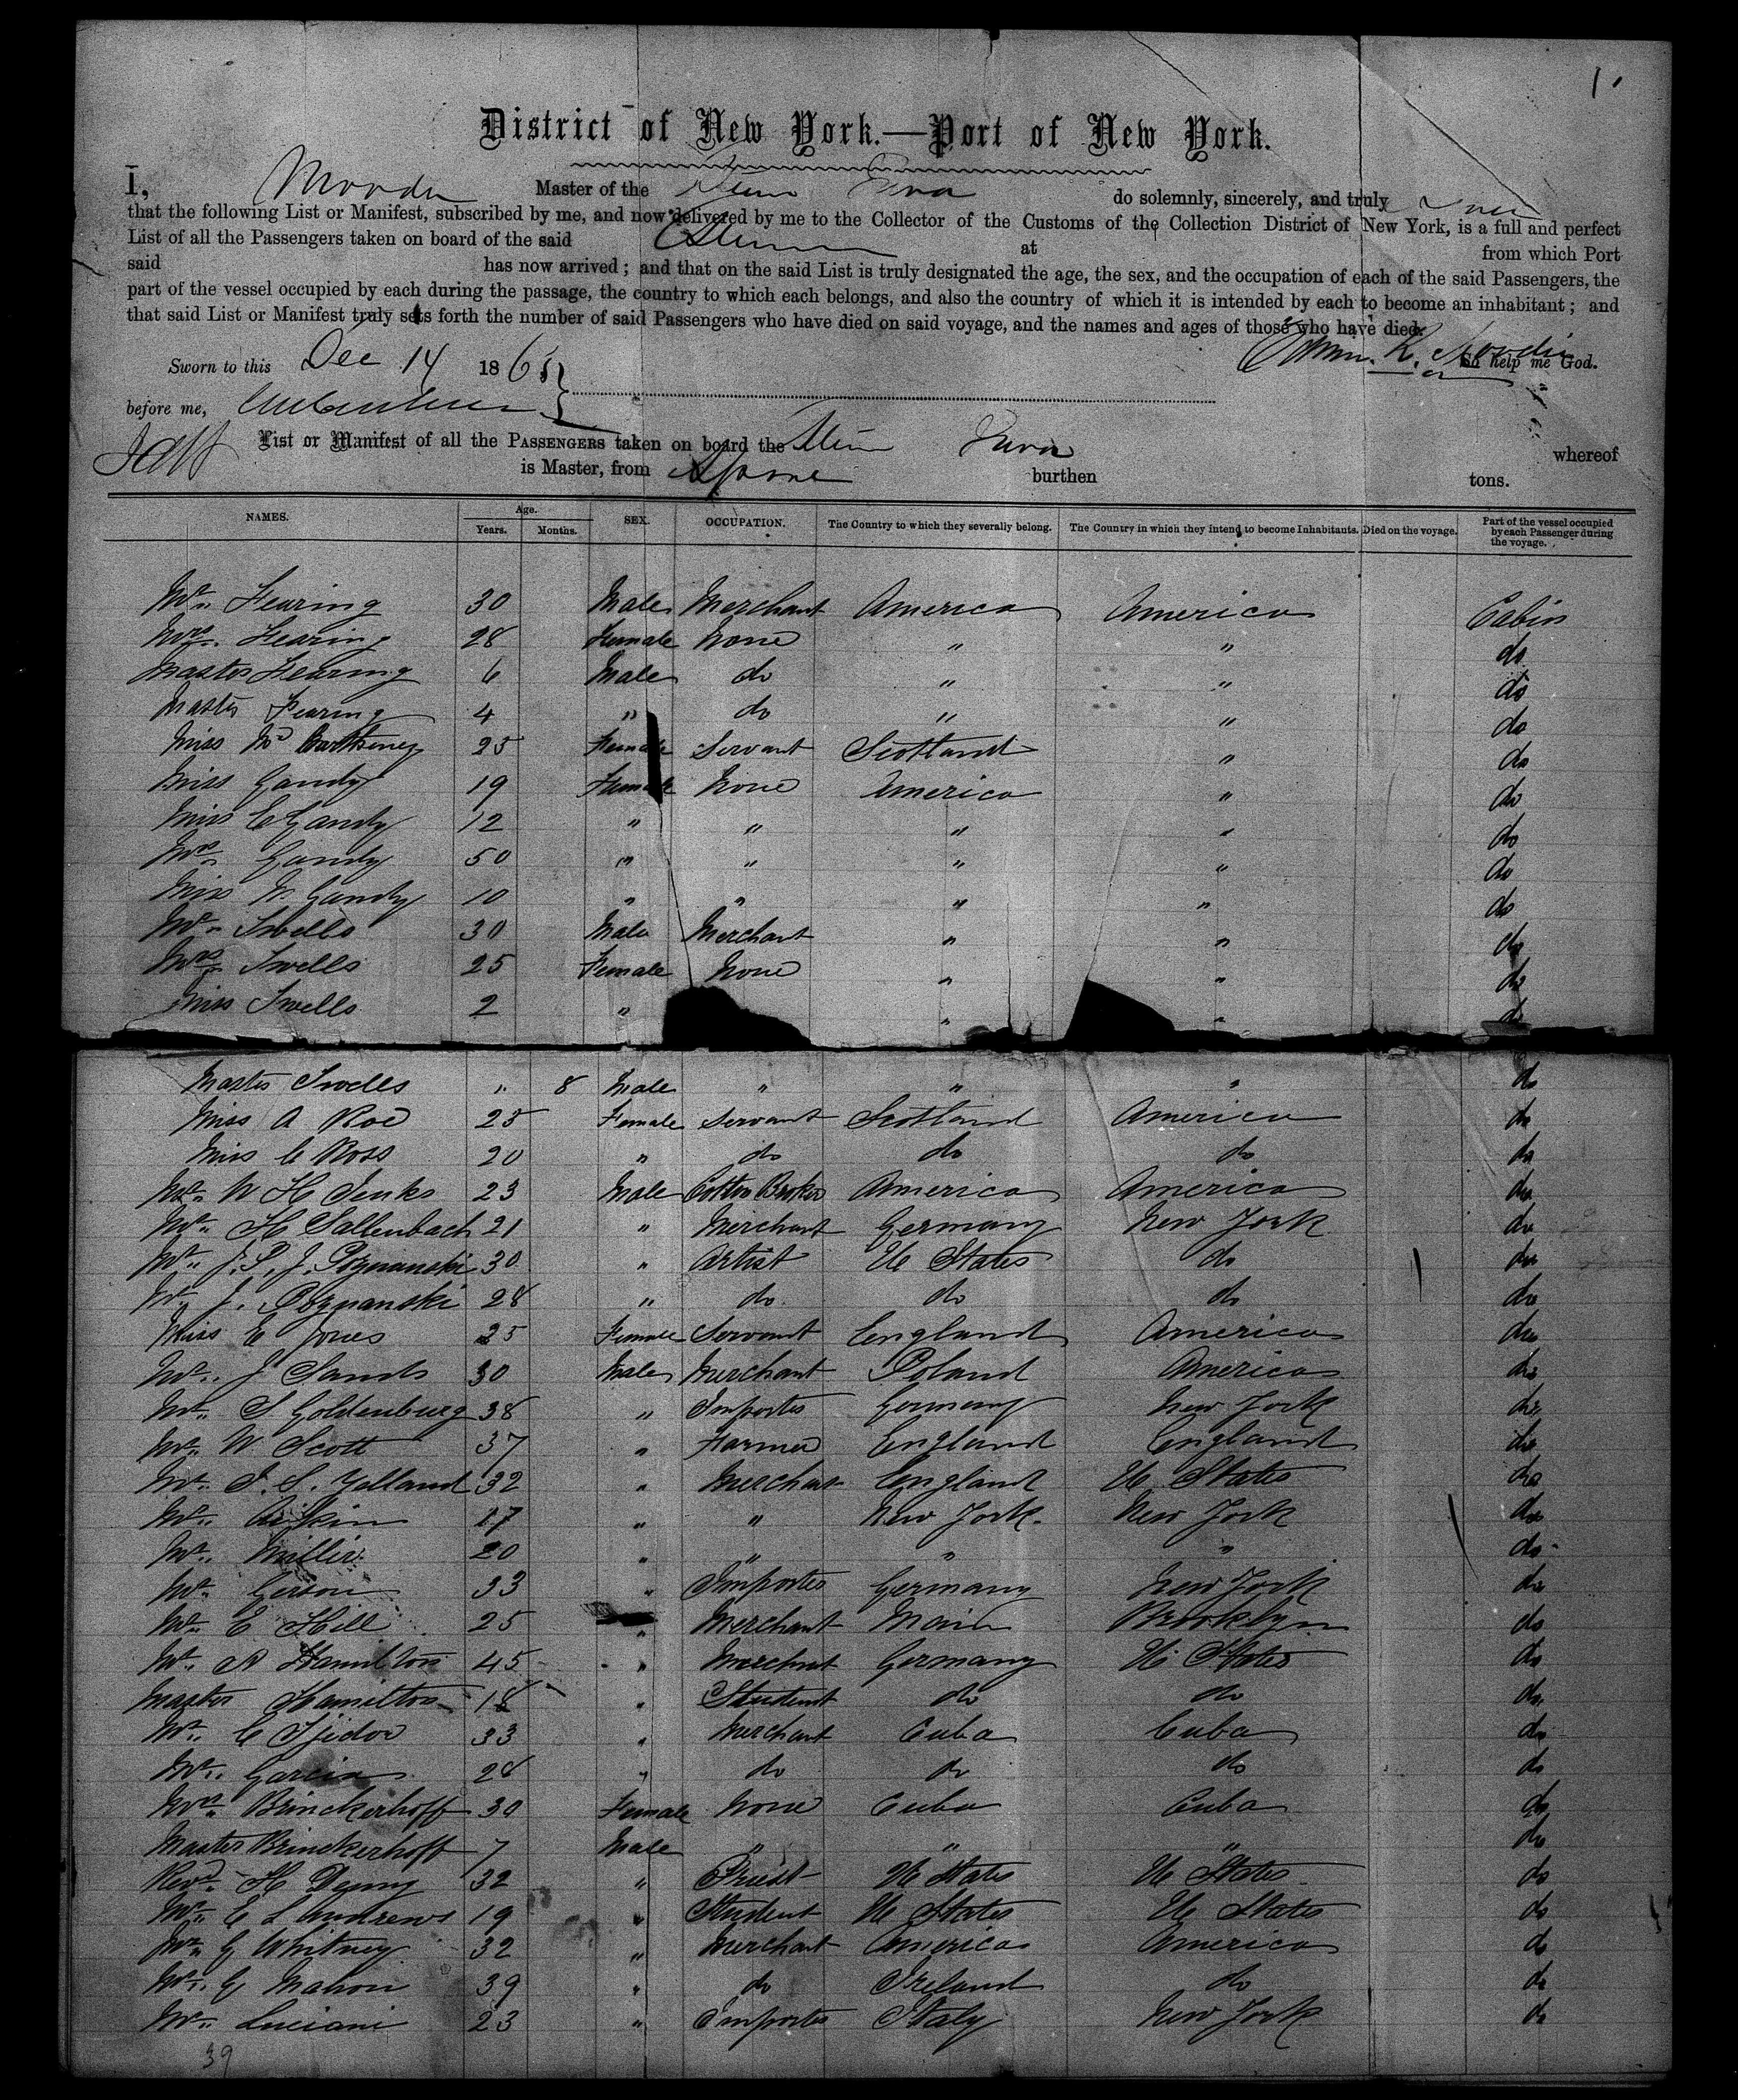 1
District of New York.—Port of New York.
I, Moodie Master of the Steam do solemnly, sincerely, and truly swear
that the following List or Manifest, subscribed by me, and now delivered by me to the Collector of the Customs of the Collection District of New York, is a full and perfect
List of all the Passengers taken on board of the said Steamer at from which Port
said has now arrived; and that on the said List is truly designated the age, the sex, and the occupation of each of the said Passengers, the
part of the vessel occupied by each during the passage, the country to which each belongs, and also the country of which it is intended by each to become an inhabitant; and
that said List or Manifest truly sets forth the number of said Passengers who have died on said voyage, and the names and ages of those who have died.
So help me God.
Sworn to this Dec 14 1865
before me,
List or Manifest of all the PASSENGERS taken on board the whereof
is Master, from above burthen tons.
NAMES. Age. Years. Months. SEX. OCCUPATION. The Country to which they severally belong. The Country in which they intend to become Inhabitants. Died on the voyage. Part of the vessel occupied by each Passenger during the voyage.
Mr. Fearing 30 Male Merchant America America Cabin
Mrs. Fearing 28 Female None " " do
Master Fearing 6 Male do " " do
Master Fearing 4 " do " " do
Miss 25 Female Servant Scotland " do
Miss Gandy 19 Female None America " do
Miss E Gandy 12 " " " " do
Mrs. Gandy 50 " " " " do
Miss N. Gandy 10 " " " " do
Mr. Swells 30 Male Merchant " " do
Mrs. Swells 25 Female None " " do
Miss Swells 2 " " " do
Master Swells " 8 Male " " " do
Miss A Roe 25 Female Servant Scotland America do
Miss C Ross 20 " do do do do
Mr. W H Jenks 23 Male Cotton Broker America America do
Mr. H Sallenbach 21 " Merchant Germany New York do
Mr. J. P. J. Poznanski 30 " Artist U States do do
Mr. J. Poznanski 28 " do do do do
Miss E Jones 25 Female Servant England America do
Mr. J Sands 30 Male Merchant Poland America do
Mr. S Goldenburg 38 " Importer Germany New York do
Mr. W Scott 37 " Farmer England England do
Mr. J. S. Yelland 32 " Merchant England U States do
Mr. Aitkin 27 " " New York New York do
Mr. Miller 20 " " " " do
Mr. Gerson 33 " Importer Germany New York do
Mr. E Hill 25 " Merchant Main Brooklyn do
Mr. A Hamilton 45 " Merchant Germany U. States do
Master Hamilton 18 " Student do do do
Mr. C 33 " Merchant Cuba Cuba do
Mr. Garcia 28 " do do do do
Mrs. Brinckerhoff 30 Female None Cuba Cuba do
Master Brinckerhoff 7 Male " " " do
Revd. H Denny 32 " Priest U States U States do
Mr. C L Andrews 19 " Student U States U States do
Mr. G Whitney 32 " Merchant America America do
Mr. G Mahon 39 " do Ireland do do
Mr. Luciani 23 " Importer Italy New York do
39